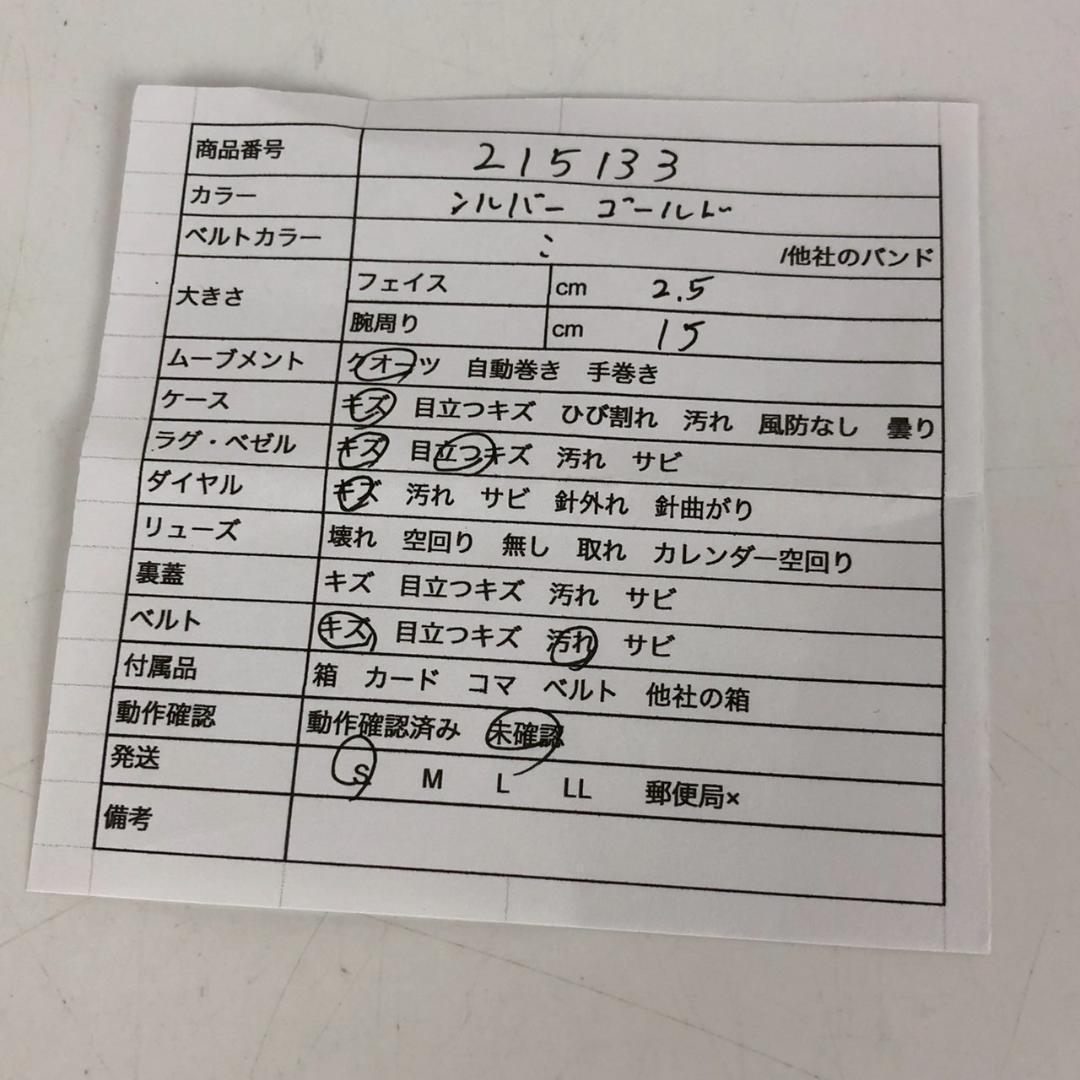 商品番号 215133
カラー シルバー ゴールド
ベルトカラー 〃 /他社のバンド
大きさ フェイス cm 2.5
腕周り cm 15
ムーブメント クオーツ 自動巻き 手巻き
ケース キズ 目立つキズ ひび割れ 汚れ 風防なし 曇り
ラグ・ベゼル キズ 目立つキズ 汚れ サビ
ダイヤル キズ 汚れ サビ 針外れ 針曲がり
リューズ 壊れ 空回り 無し 取れ カレンダー空回り
裏蓋 キズ 目立つキズ 汚れ サビ
ベルト キズ 目立つキズ 汚れ サビ
付属品 箱 カード コマ ベルト 他社の箱
動作確認 動作確認済み 未確認
発送 S M L LL 郵便局×
備考